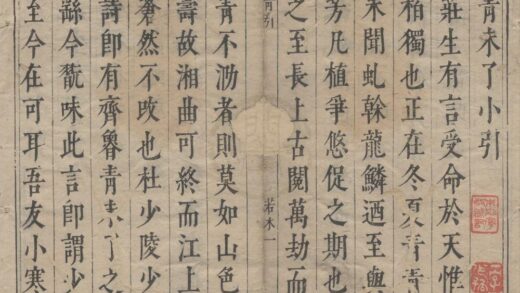 青未了小引
莊生有言受命於天惟
柏獨也正在冬夏青青
未聞虬榦龍鱗迺至與
芳凡植爭悠促之期也
之至長上古閱萬劫而
青引
若木一
青不泐者則莫如山色
壽故湘曲可終而江上
蒼然不改也杜少陵
詩卽有齊魯青未了之
繇今翫味此言卽謂少
至今在可耳吾友小寒